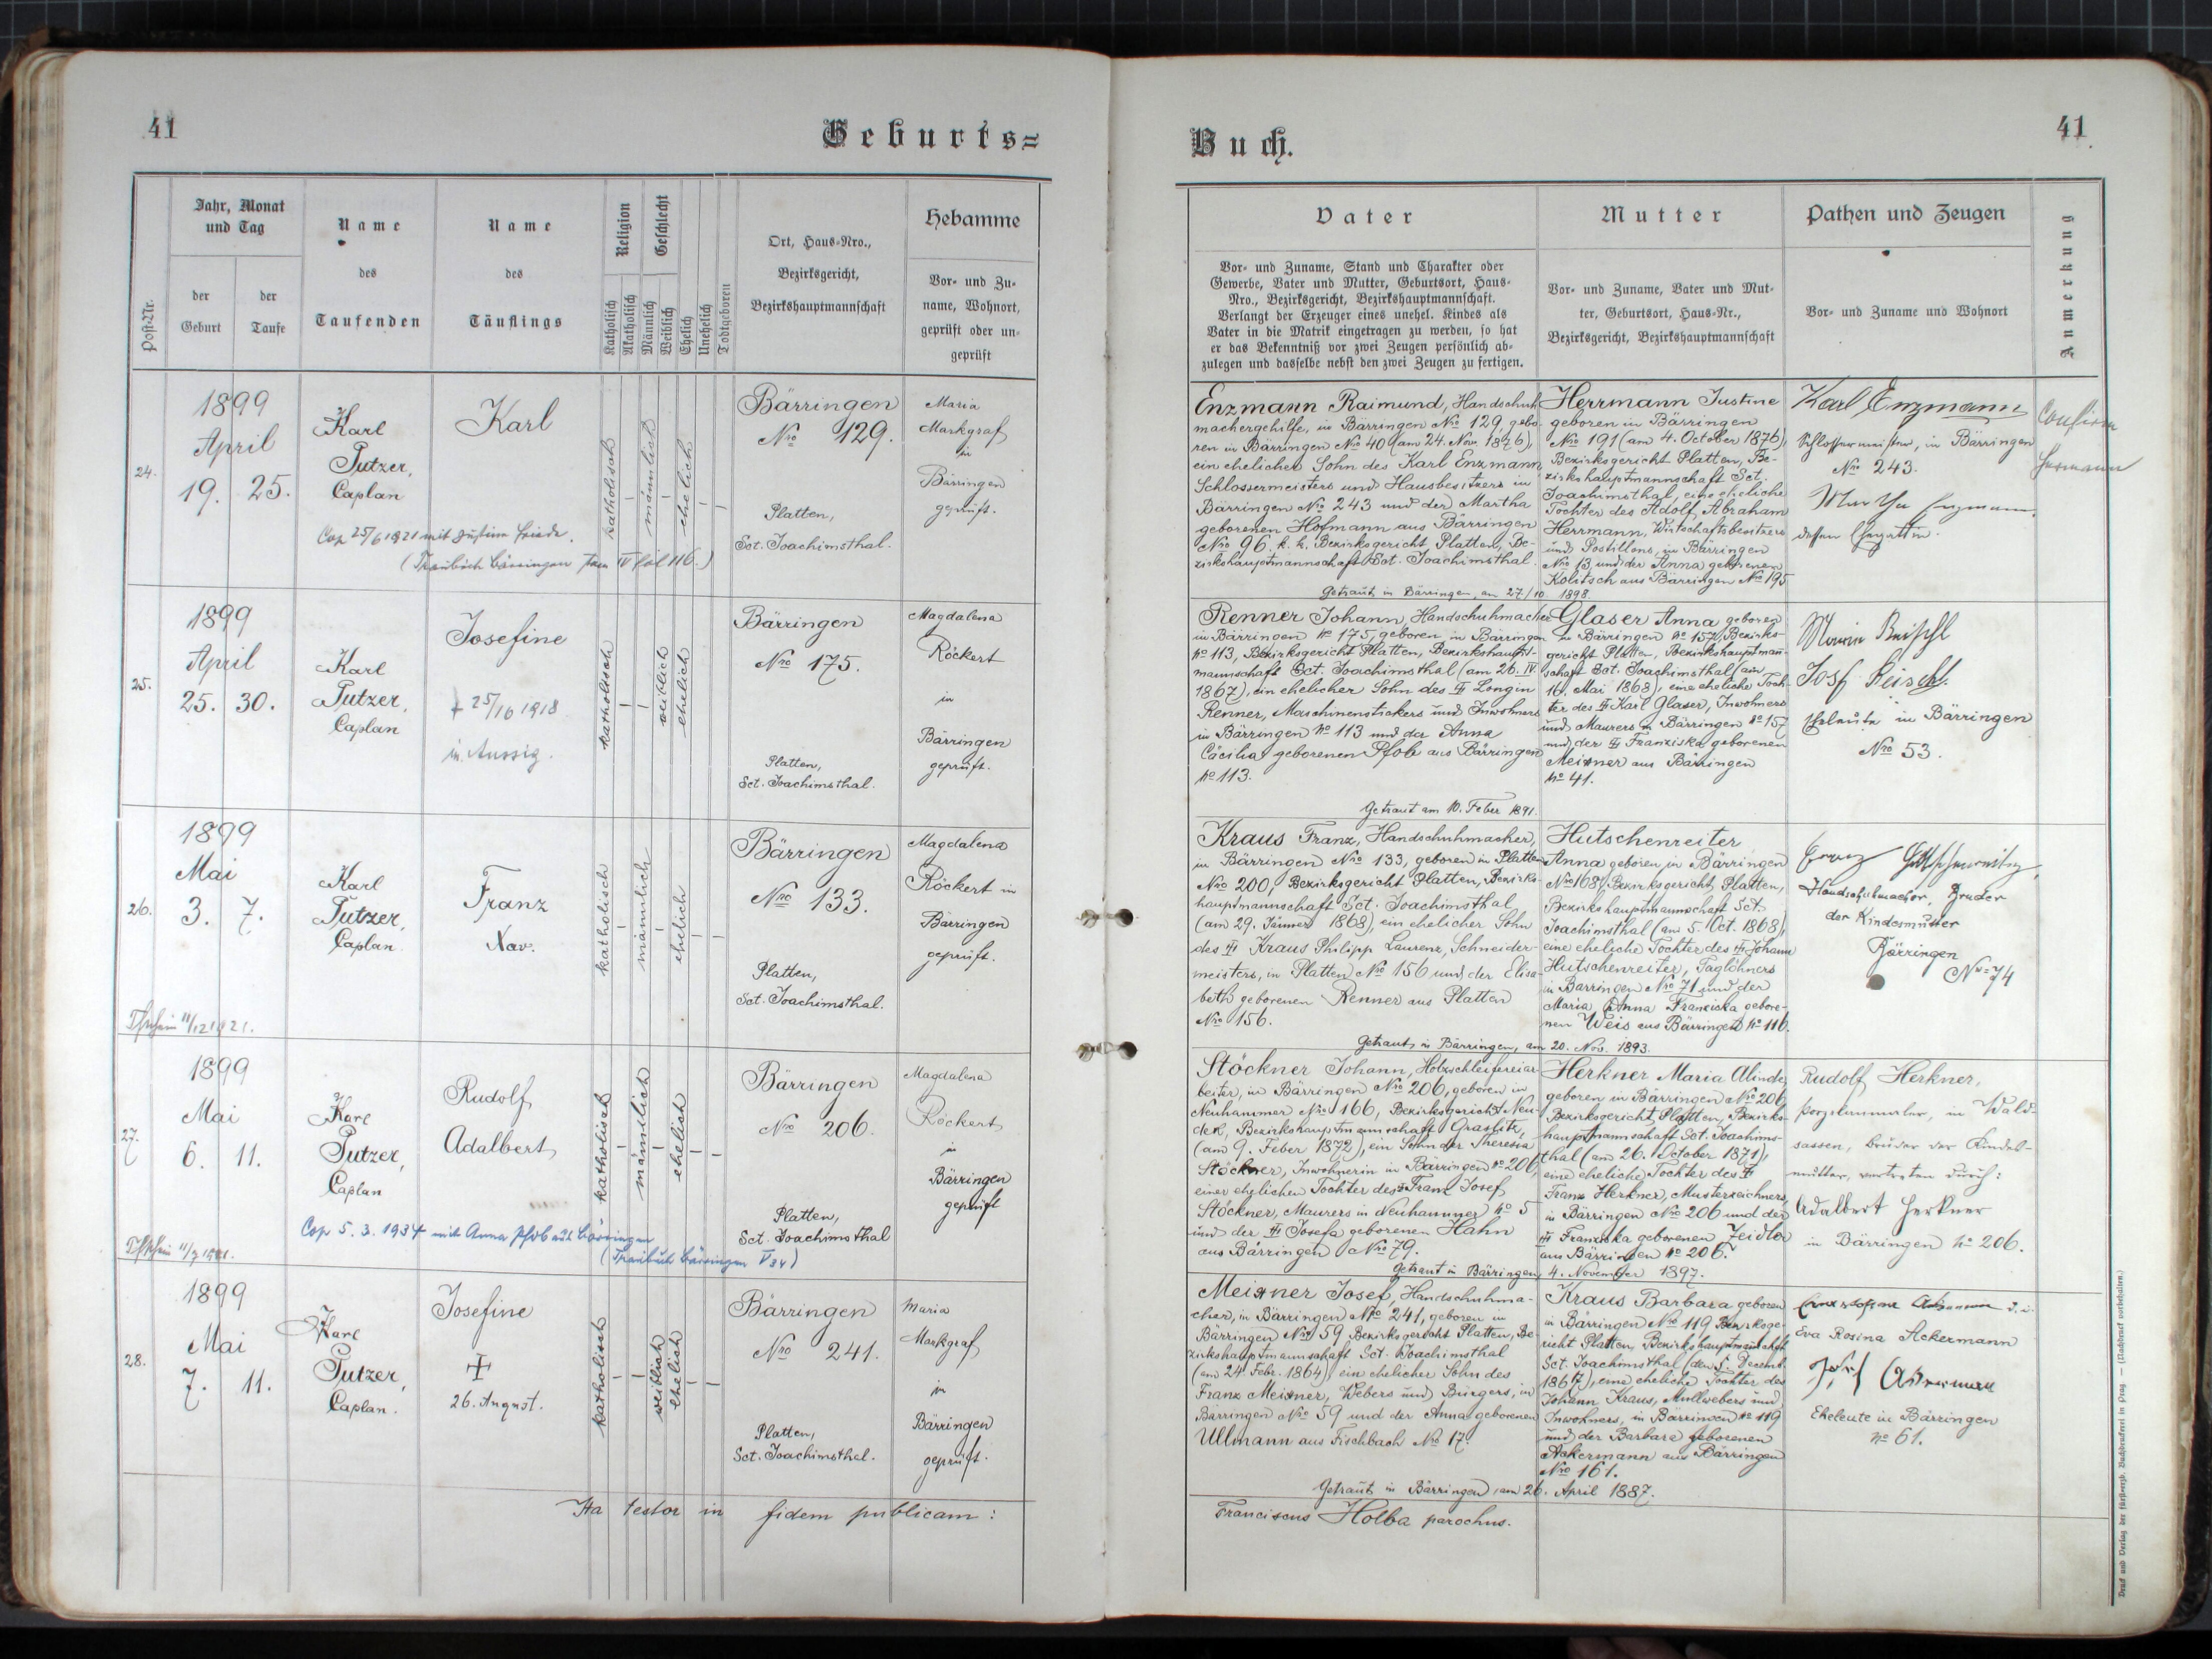 41
Geburts=
Post-Nr.
Jahr, Monat
und Tag
der
Geburt
der
Taufe
Name
des
Taufenden
Name
des
Täuflings
Religion
Katholisch
Akatholisch
Geschlecht
Männlich
Weiblich
Ehelich
Unehelich
Todtgeboren
Ort, Haus-Nro.,
Bezirksgericht,
Bezirkshauptmannschaft
Hebamme
Vor- und Zu-
name, Wohnort,
geprüft oder un-
geprüft
24.
1899
April
19. 25.
Karl
Putzer,
Caplan
Karl
katholisch
männlich
ehelich
Bärringen
Nro 129.
Platten,
Sct. Joachimsthal.
Maria
Markgraf
in
Bärringen
geprüft.
Cop 25/6 1921 mit Justine
25.
1899
April
25. 30.
Karl
Putzer,
Caplan
Josefine
† 25/10 1918
in Aussig.
katholisch
weiblich
ehelich
Bärringen
Nro 175.
Platten,
Sct. Joachimsthal.
Magdalena
Röckert
in
Bärringen
geprüft.
26.
1899
Mai
3. 7.
Karl
Putzer,
Caplan.
Franz
Xav.
katholisch
männlich
ehelich
Bärringen
Nro 133.
Platten,
Sct. Joachimsthal.
Magdalena
Röckert in
Bärringen
geprüft.
27.
1899
Mai
6. 11.
Karl
Putzer,
Caplan
Rudolf
Adalbert
katholisch
männlich
ehelich
Bärringen
Nro 206.
Platten,
Sct. Joachimsthal
Magdalena
Röckert
in
Bärringen
geprüft
Cop 5. 3. 1934 mit Anna Pfob aus Bärringen
(Traubuch Bärringen V 34)
28.
1899
Mai
7. 11.
Karl
Putzer,
Caplan.
Josefine
†
26. August.
katholisch
weiblich
ehelich
Bärringen
Nro 241.
Platten,
Sct. Joachimsthal.
Maria
Markgraf
in
Bärringen
geprüft.
Ita testor in fidem publicam:
Buch.
41
Vater
Vor- und Zuname, Stand und Charakter oder
Gewerbe, Vater und Mutter, Geburtsort, Haus-
Nro., Bezirksgericht, Bezirkshauptmannschaft.
Verlangt der Erzeuger eines unehel. Kindes als
Vater in die Matrik eingetragen zu werden, so hat
er das Bekenntniß vor zwei Zeugen persönlich ab-
zulegen und dasselbe nebst den zwei Zeugen zu fertigen.
Mutter
Vor- und Zuname, Vater und Mut-
ter, Geburtsort, Haus-Nr.,
Bezirksgericht, Bezirkshauptmannschaft
Pathen und Zeugen
Vor- und Zuname und Wohnort
Anmerkung
Enzmann Raimund, Handschuh-
machergehilfe, in Bärringen Nro 129, gebo-
ren in Bärringen Nro 40 (am 24. Nov. 1876),
ein ehelicher Sohn des Karl Enzmann
Schlossermeisters und Hausbesitzers in
Bärringen Nro 243 und der Martha
geborenen Hofmann aus Bärringen
Nro 96. k. k. Bezirksgericht Platten, Be-
zirkshauptmannschaft Sct. Joachimsthal.
Herrmann Justine
geboren in Bärringen
Nro 191 (am 4. October 1876),
Bezirksgericht Platten, Be-
zirkshauptmannschaft Sct.
Joachimsthal, eine eheliche
Tochter des Adolf Abraham
Herrmann, Wirtschaftsbesitzers
und Postillons, in Bärringen
Nro 13 und der Anna geborenen
Kolitsch aus Bärringen No 195
Getraut in Bärringen, am 27/10 1898.
Karl Enzmann
Schlossermeister, in Bärringen
Nro 243.
Martha Enzmann
dessen Ehegattin.
Renner Johann, Handschuhmacher
in Bärringen No 175, geboren in Bärringen
No 113, Bezirksgericht Platten, Bezirkshaupt-
mannschaft Sct. Joachimsthal (am 26. IV.
1867), ein ehelicher Sohn des Longin
Renner, Maschinenstickers und Inwohners
in Bärringen No 113 und der Anna
Cäcilia geborenen Pfob aus Bärringen
No 113.
Glaser Anna geboren
in Bärringen No 157, Bezirks-
gericht Platten, Bezirkshauptmann-
schaft Sct. Joachimsthal (am
16. Mai 1868), eine eheliche Toch-
ter des Karl Glaser, Inwohners
und Maurers in Bärringen No 157
und der Franziska geborenen
Meixner aus Bärringen
No 41.
Getraut am 10. Feber 1891.
Josf Reischl.
Eheleute in Bärringen
Nro 53.
Kraus Franz, Handschuhmacher,
in Bärringen Nro 133, geboren in Platten
Nro 200, Bezirksgericht Platten, Bezirks-
hauptmannschaft Sct. Joachimsthal
(am 29. Jänner 1868), ein ehelicher Sohn
des Kraus Philipp Laurenz, Schneider-
meisters, in Platten No 156 und der Elisa-
beth geborenen Renner aus Platten
Nro 156.
Hutschenreiter
Anna geboren in Bärringen
Nro 168, Bezirksgericht Platten,
Bezirkshauptmannschaft Sct.
Joachimsthal (am 5. Oct. 1868),
eine eheliche Tochter des Johann
Hutschenreiter, Taglöhners
in Bärringen Nro 71 und der
Maria Anna Franziska gebore-
nen Weis aus Bärringen No 116.
Getraut, in Bärringen, am 20. Nov. 1893.
Handschuhmacher, Bruder
der Kindesmutter
Bärringen
No 74
Stöckner Johann, Holzschleifereiar-
beiter, in Bärringen No 206, geboren in
Neuhammer Nro 166, Bezirksgericht Neu-
dek, Bezirkshauptmannschaft Graslitz,
(am 9. Feber 1872), ein Sohn der Theresia
Stöckner, Inwohnerin in Bärringen No 206,
einer ehelichen Tochter des Franz Josef
Stöckner, Maurers in Neuhammer No 5
und der Josefa geborenen Hahn
aus Bärringen Nro 79.
Herkner Maria Alinde
geboren in Bärringen No 206
Bezirksgericht Platten, Bezirks-
hauptmannschaft Sct. Joachims-
thal (am 26. October 1871),
eine eheliche Tochter des
Franz Herkner, Musterzeichners,
in Bärringen Nro 206 und der
Franziska geborenen Zeidler
aus Bärringen No 206.
Getraut in Bärringen, 4. November 1897.
Rudolf Herkner,
in Wald-
sassen, Bruder der Kindes-
mutter, vertreten durch:
Adalbert Herkner
in Bärringen No 206.
Meixner Josef, Handschuhma-
cher, in Bärringen No 241, geboren in
Bärringen No 59 Bezirksgericht Platten, Be-
zirkshauptmannschaft Sct. Joachimsthal
(am 24. Febr. 1864), ein ehelicher Sohn des
Franz Meixner, Webers und Bürgers, in
Bärringen Nro 59 und der Anna geborenen
Ullmann aus Fischbach No 17.
Kraus Barbara geboren
in Bärringen No 119 Bezirksge-
richt Platten, Bezirkshauptmannschaft
Sct. Joachimsthal (den 5. Decemb.
1867), eine eheliche Tochter des
Johann Kraus, Mullwebers und
Inwohners, in Bärringen No 119
und der Barbara geborenen
Ackermann aus Bärringen
Nro 161.
Getraut in Bärringen am 26. April 1887.
Eva Rosina Ackermann
Eheleute in Bärringen
No 61.
Franciscus Holba parochus.
Druck und Verlag der fürsterzb. Buchdruckerei in Prag. — (Nachdruck vorbehalten.)